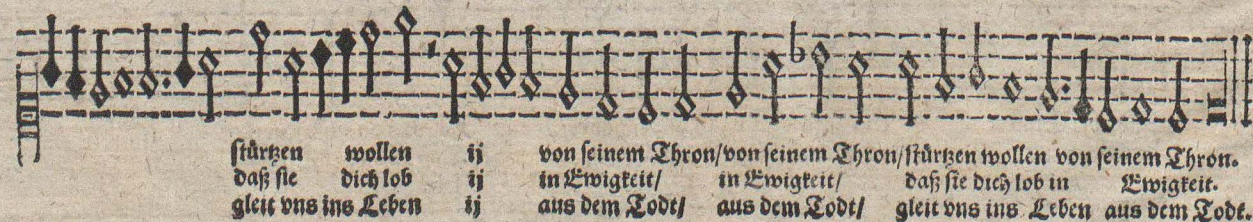 ſtürtzen wollen ij von ſeinem Thron/von ſeinem Thron/ſtürtzen wollen von ſeinem Thron.
daß ſie dich lob ij in Ewigkeit/ in Ewigkeit/ daß ſie dich lob in Ewigkeit.
gleit vns ins Leben ij aus dem Todt/ aus dem Todt/ gleit vns ins Leben aus dem Todt.